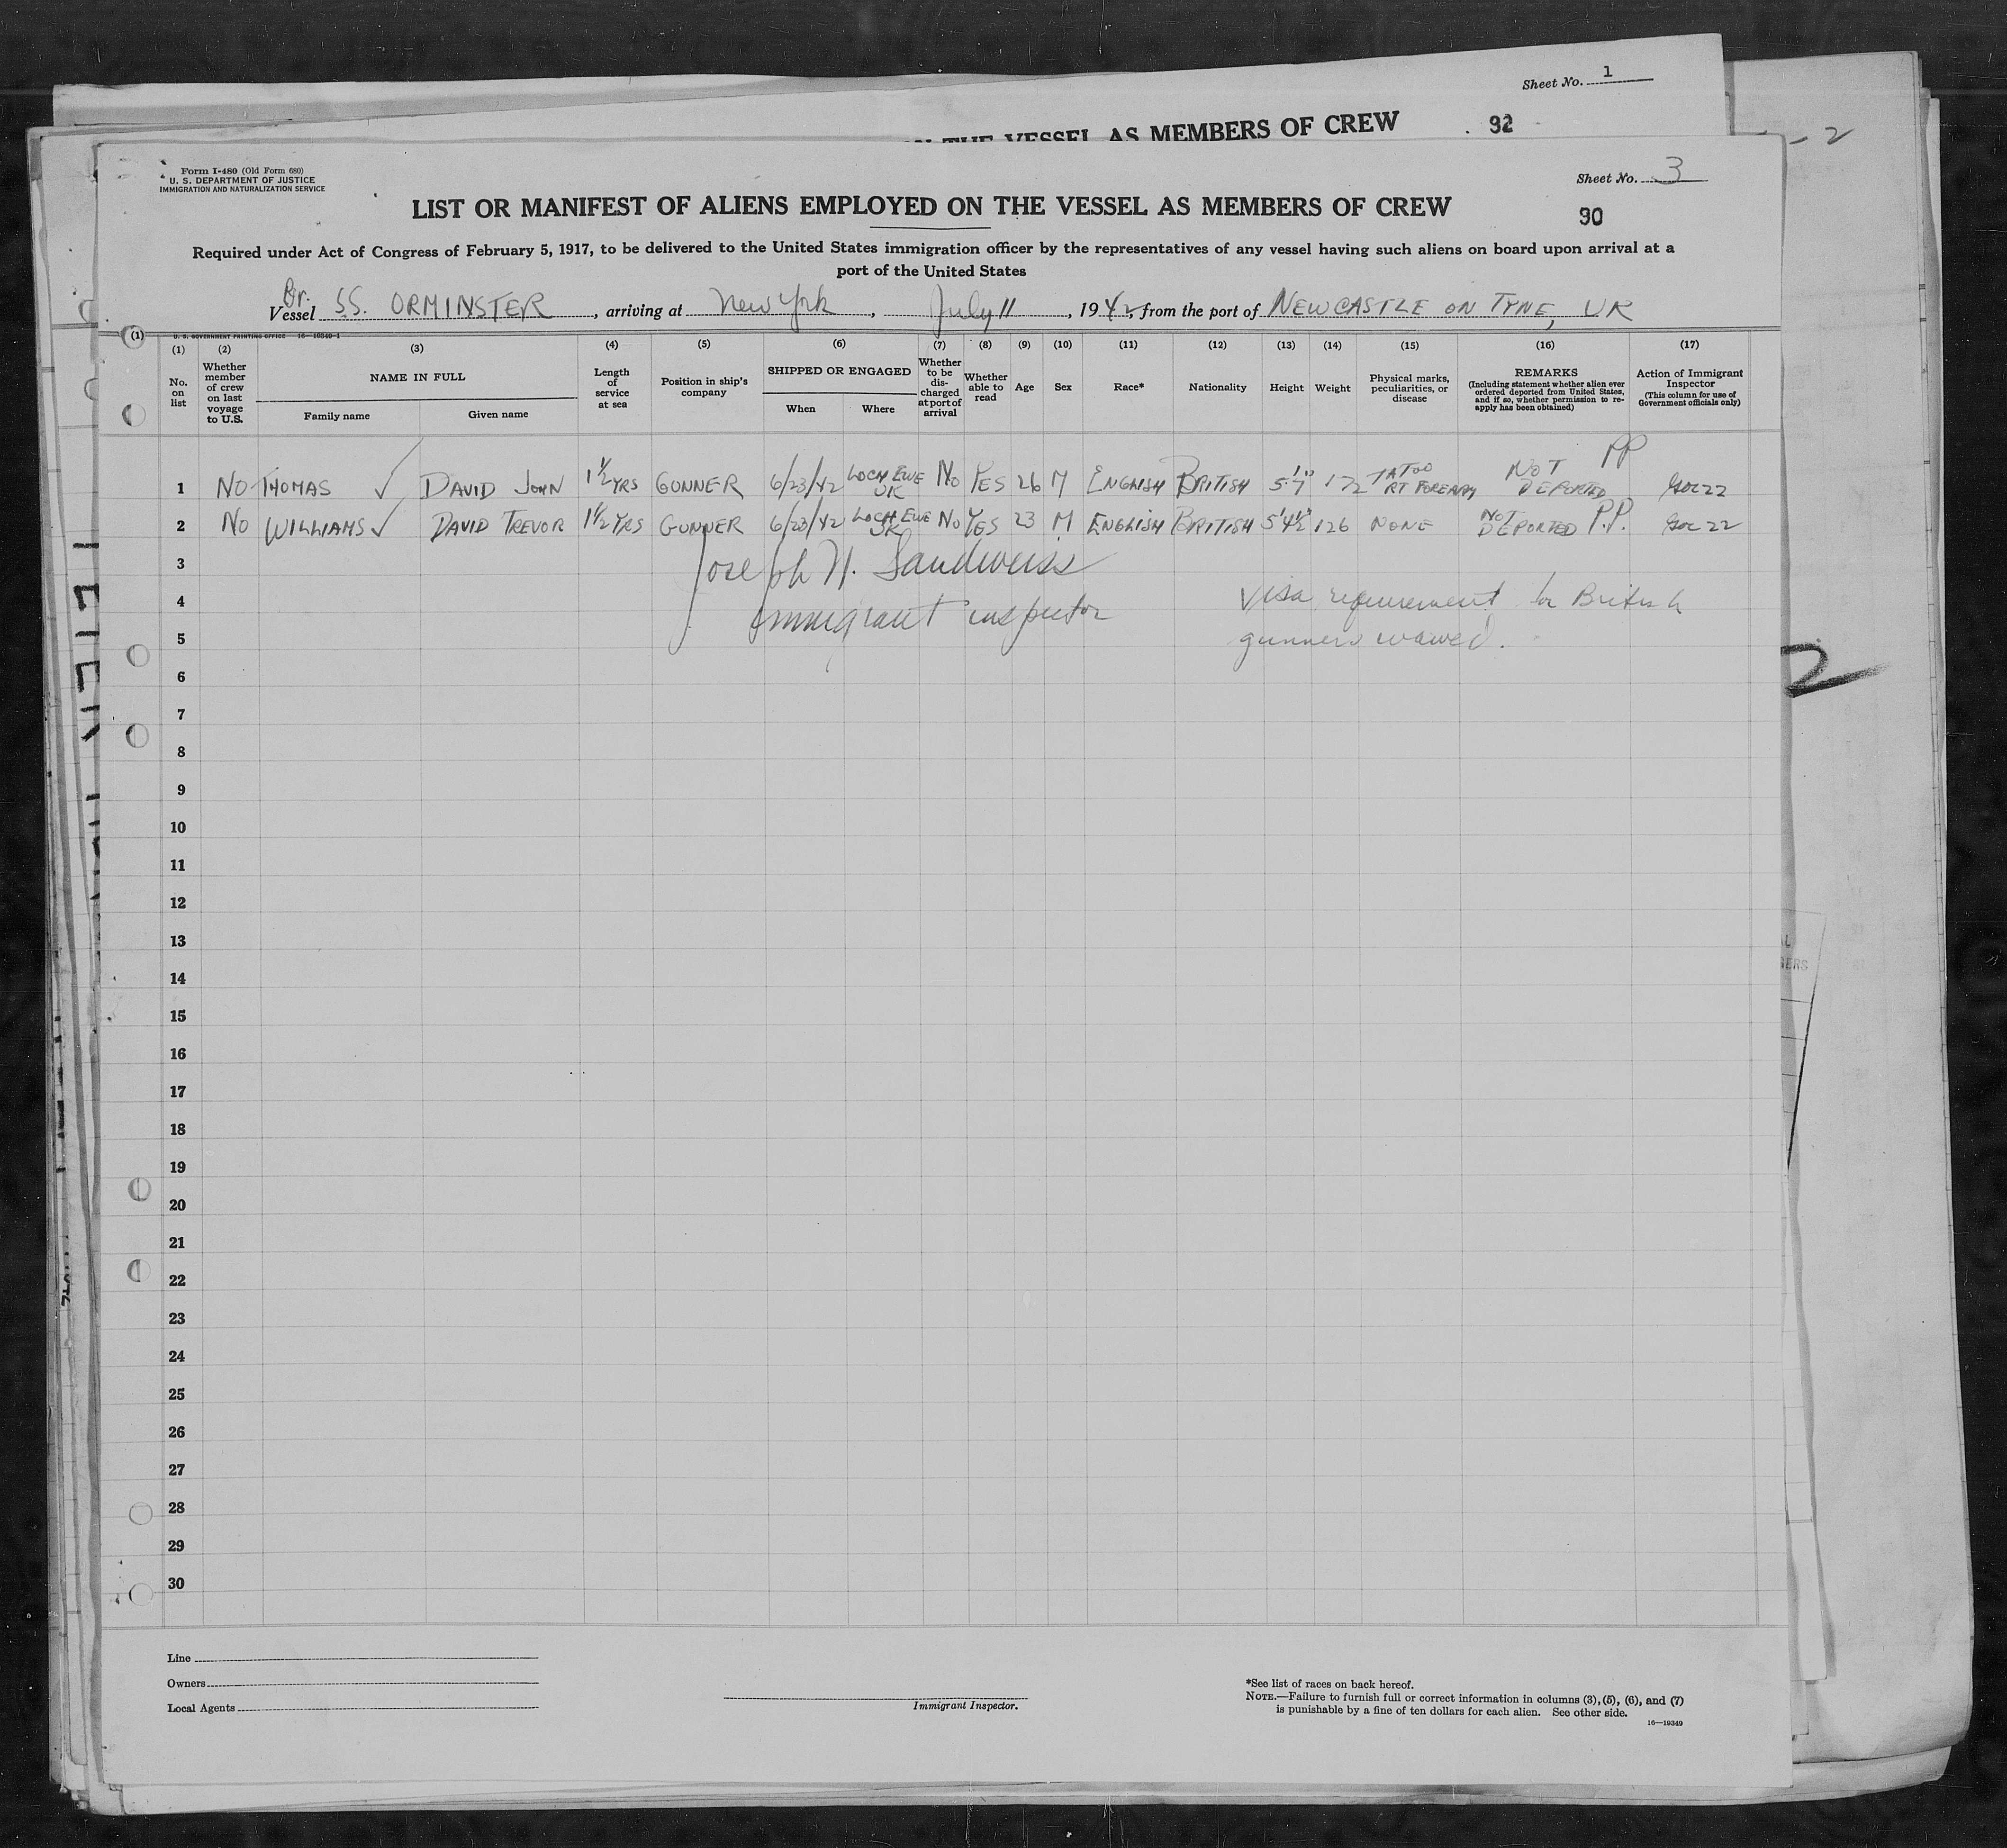 Sheet No. 1
THE VESSEL AS MEMBERS OF CREW
92
2
Form I-480 (Old Form 680)
U. S. DEPARTMENT OF JUSTICE
IMMIGRATION AND NATURALIZATION SERVICE
Sheet No. 3
LIST OR MANIFEST OF ALIENS EMPLOYED ON THE VESSEL AS MEMBERS OF CREW
90
Required under Act of Congress of February 5, 1917, to be delivered to the United States immigration officer by the representatives of any vessel having such aliens on board upon arrival at a
port of the United States
Br.
Vessel SS. ORMINSTER, arriving at New York, July 11, 1942, from the port of NEWCASTLE ON TYNE, UK
U. S. GOVERNMENT PRINTING OFFICE 16—19349-1
(1) (1) (2) (3) (4) (5) (6) (7) (8) (9) (10) (11) (12) (13) (14) (15) (16) (17)
No. on list
Whether member of crew on last voyage to U.S.
NAME IN FULL
Family name Given name
Length of service at sea
Position in ship's company
SHIPPED OR ENGAGED
When Where
Whether to be discharged at port of arrival
Whether able to read
Age
Sex
Race*
Nationality
Height
Weight
Physical marks, peculiarities, or disease
REMARKS
(Including statement whether alien ever ordered deported from United States, and if so, whether permission to reapply has been obtained)
Action of Immigrant Inspector
(This column for use of Government officials only)
1 NO THOMAS ✓ DAVID JOHN 1½ YRS GUNNER 6/23/42 LOCH EWE UK NO YES 26 M ENGLISH BRITISH 5'7" 172 TATOO RT FOREARM NOT DEPORTED PP
2 NO WILLIAMS ✓ DAVID TREVOR 1½ YRS GUNNER 6/23/42 LOCH EWE UK NO YES 23 M ENGLISH BRITISH 5'4½" 126 NONE NOT DEPORTED P.P.
3
Joseph N. Sandweiss
4
Immigrant inspector
visa requirement for British
5
gunners waived.
6
7
8
9
10
11
12
13
14
15
16
17
18
19
20
21
22
23
24
25
26
27
28
29
30
2
Line
Owners
Local Agents
Immigrant Inspector.
*See list of races on back hereof.
NOTE.—Failure to furnish full or correct information in columns (3), (5), (6), and (7)
is punishable by a fine of ten dollars for each alien. See other side.
16—19349